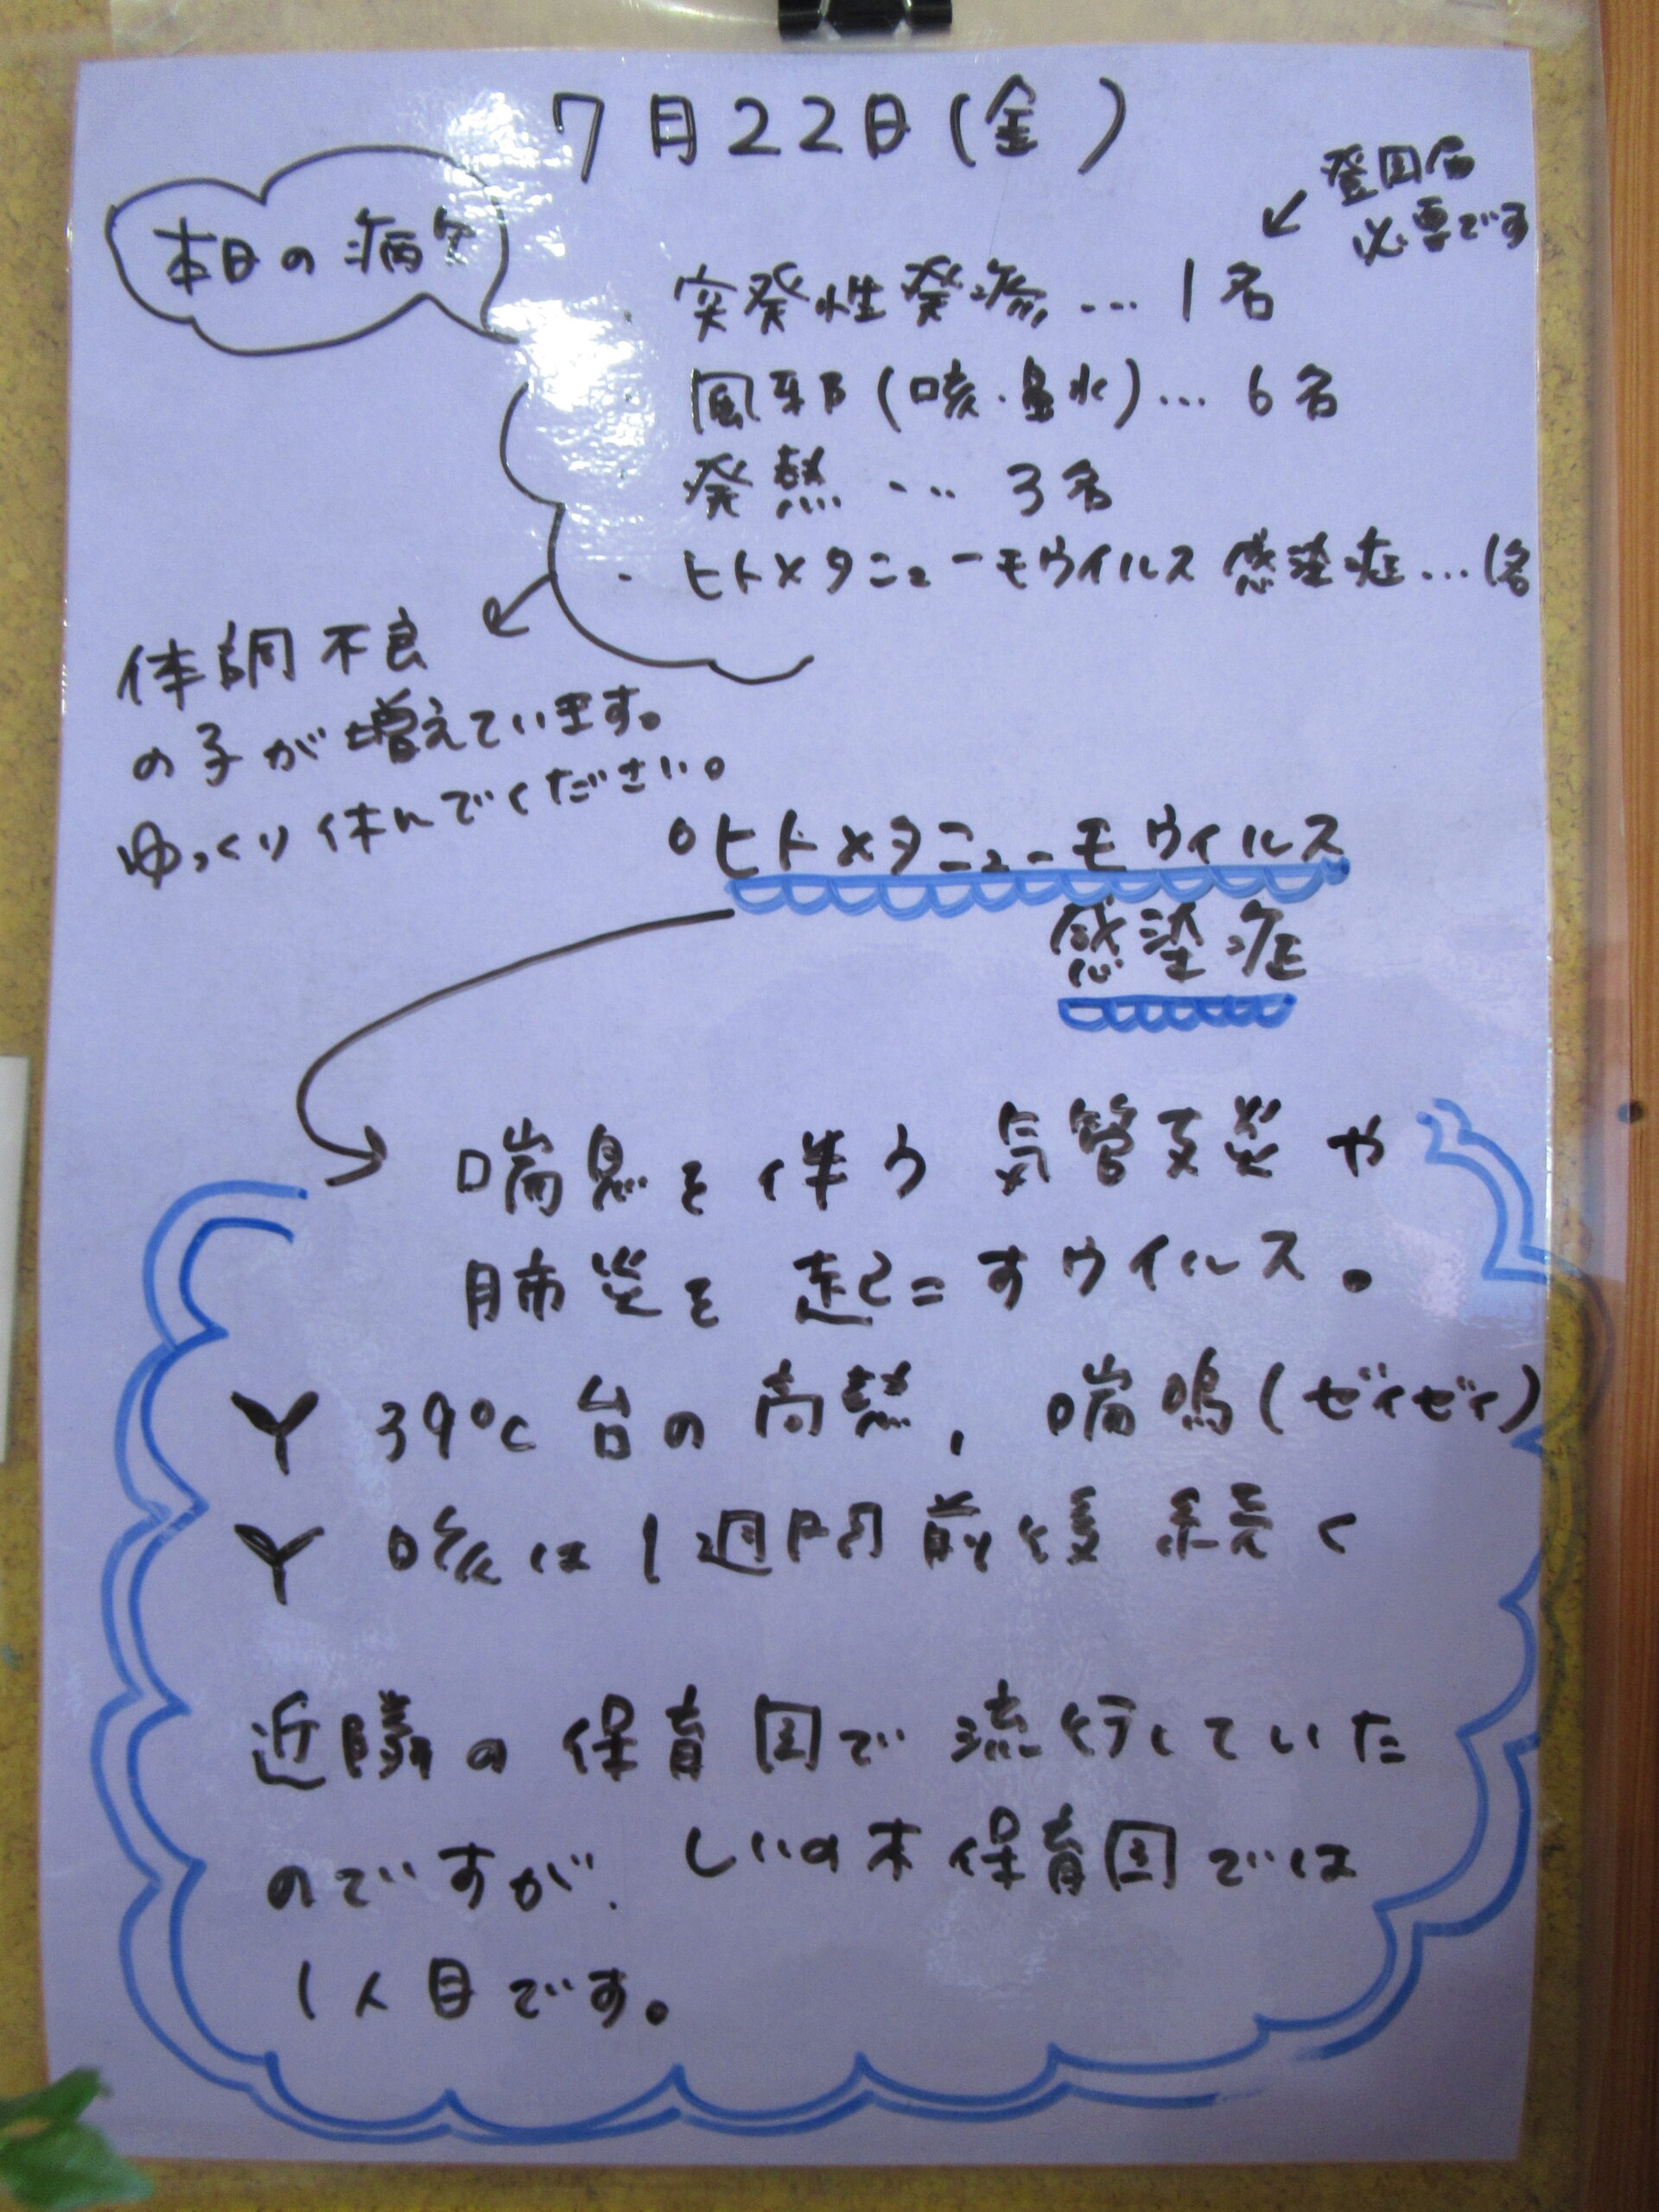 7月22日(金)
登園届
必要です
本日の病欠
・突発性発疹…1名
・風邪(咳・鼻水)…6名
・発熱…3名
・ヒトメタニューモウイルス感染症…1名
体調不良
の子が増えています。
ゆっくり休んでください。
○ヒトメタニューモウイルス
感染症
喘息を伴う気管支炎や
肺炎を起こすウイルス。
39℃台の高熱、喘鳴(ゼイゼイ)
咳は1週間前後続く
近隣の保育園で流行していた
のですが、しいの木保育園では
1人目です。